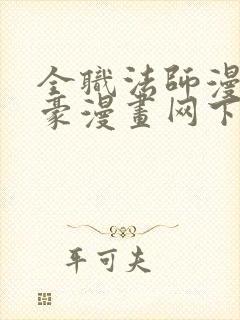 全職法師漫
豪漫畫网下
平可夫